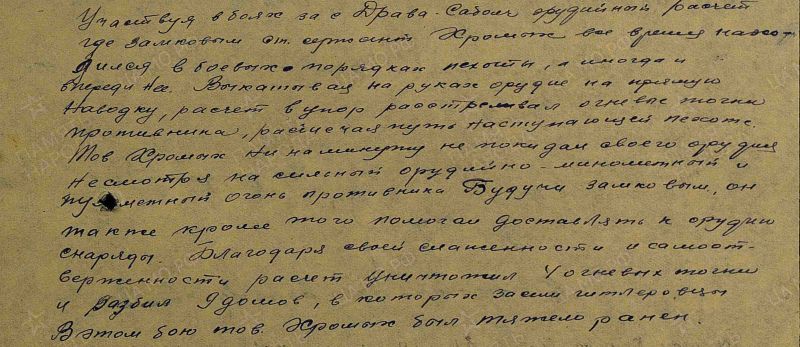 Участвуя в боях за с Драва-Сабольч орудийный расчет
где замковым ст. сержант Хромых все время нахо-
дился в боевых порядках пехоты, а иногда и
впереди нее. Выкатывая на руках орудие на прямую
наводку, расчет в упор расстреливал огневые точки
противника, расчищая путь наступающей пехоте.
Тов Хромых ни на минуту не покидал своего орудия
несмотря на сильный орудийно-минометный и
пулеметный огонь противника Будучи замковым, он
также кроме того помогал доставлять к орудию
снаряды. Благодаря своей слаженности и самоот-
верженности расчет уничтожил 4 огневых точки
и разбил 9 домов, в которых засели гитлеровцы
В этом бою тов. Хромых был тяжело ранен.